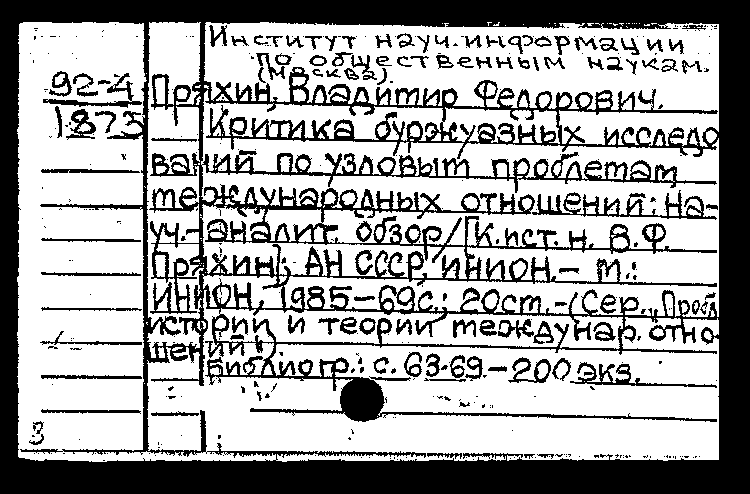 Институт науч. информации
по общественным наукам.
(Москва).
92-4 Пряхин, Владимир Федорович.
1873 Критика буржуазных исследо
ваний по узловым проблемам
международных отношений: На-
уч.-аналит. обзор/[К.ист.н. В.Ф.
Пряхин]; АН СССР, ИНИОН.- М.:
ИНИОН, 1985-69с.; 20см.-(Сер. "Пробл
истории и теории междунар. отно-
шений").
Библиогр.: с. 63-69.-200 экз.
3